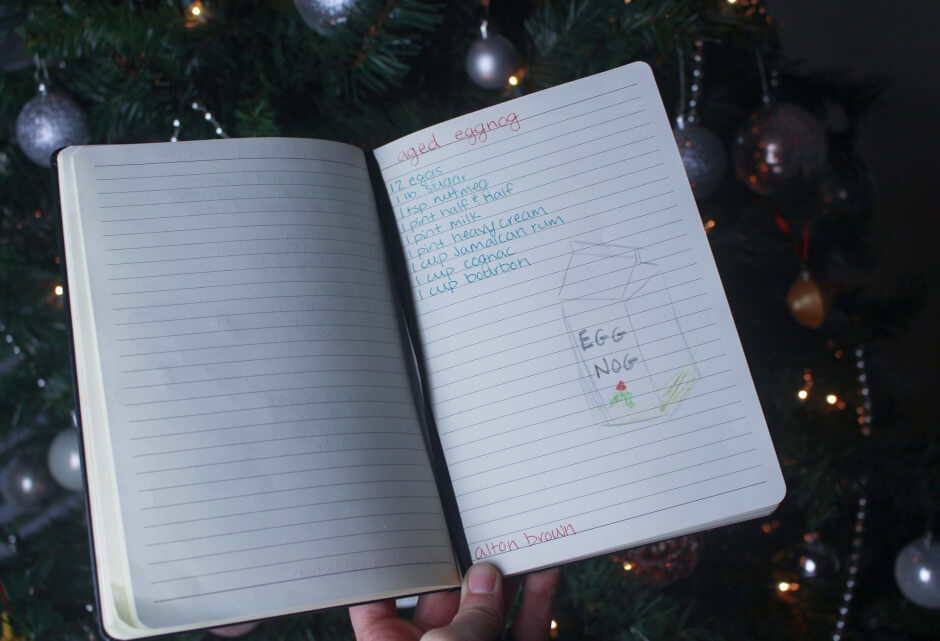 aged eggnog
12 eggs
1 lb sugar
1 tsp nutmeg
1 pint half & half
1 pint milk
1 pint heavy cream
1 cup Jamaican rum
1 cup cognac
1 cup bourbon
EGG
NOG
alton brown